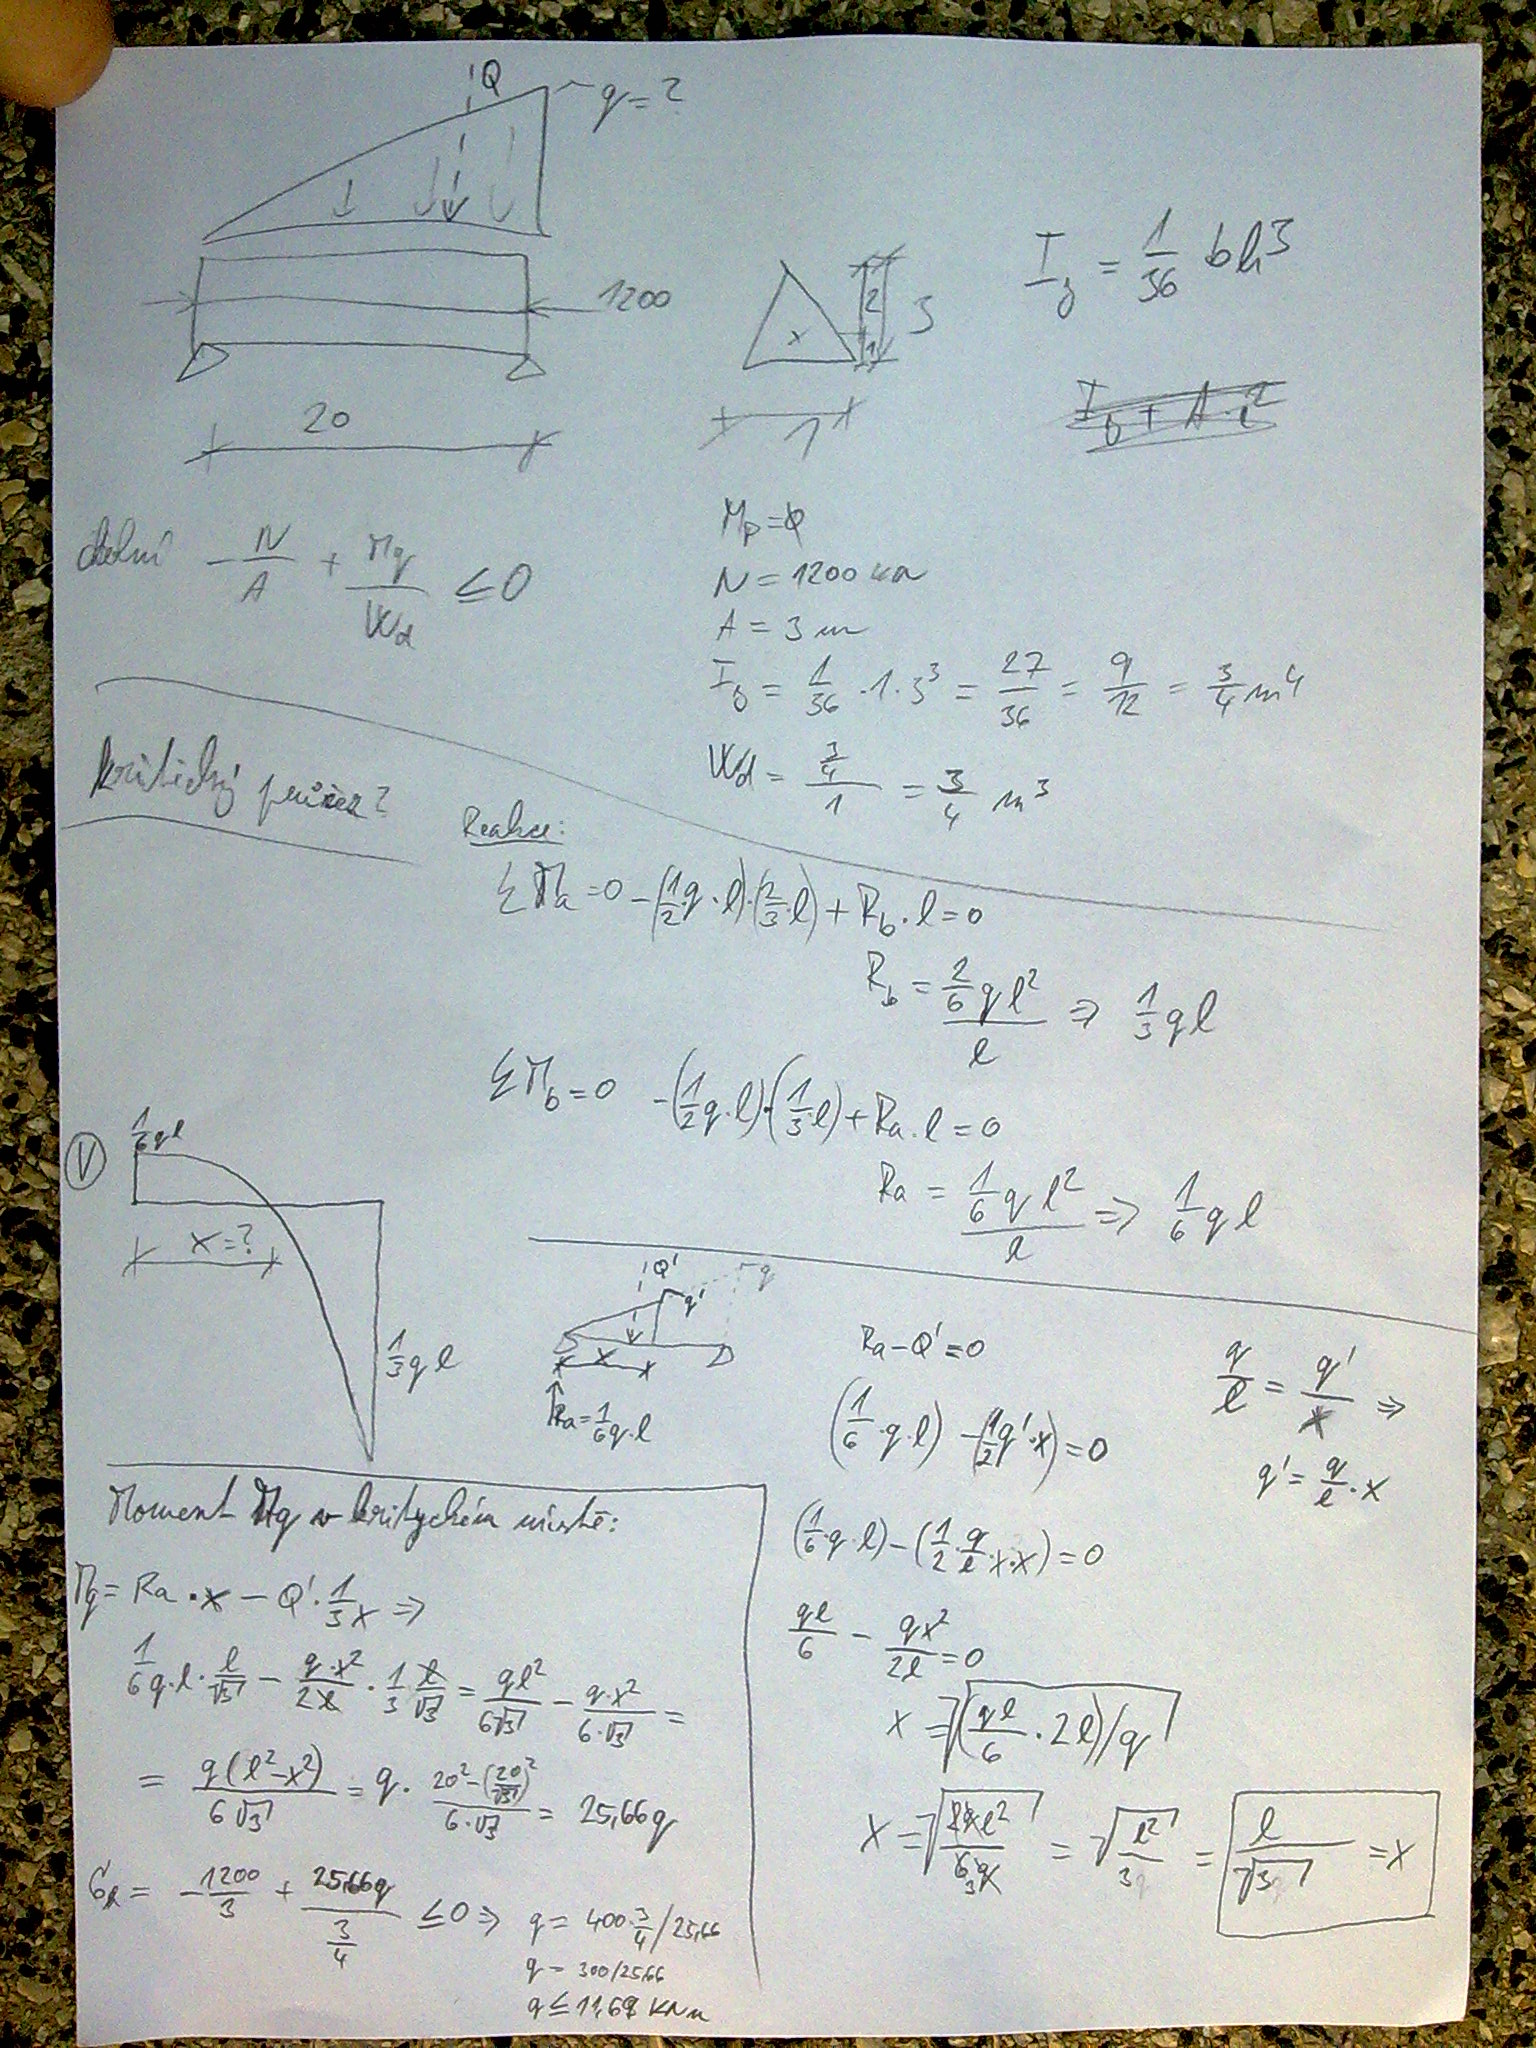 Q
q = ?
1200
20
2
3
1
1
I_z = 1/36 bh³
dolní - N/A + Mq/Wd ≤ 0
Mp = 0
N = 1200 kN
A = 3 m
I_z = 1/36 · 1 · 3³ = 27/36 = 9/12 = 3/4 m⁴
Wd = (3/4)/1 = 3/4 m³
kritický průřez?
Reakce:
ΣMa = 0 -(1/2 q · l)·(2/3 · l) + Rb · l = 0
Rb = (2/6 q l²)/l => 1/3 q l
ΣMb = 0 -(1/2 q · l)·(1/3 · l) + Ra · l = 0
Ra = (1/6 q l²)/l => 1/6 q l
V
1/6 q l
x = ?
1/3 q l
Q'
q'
q
x
Ra = 1/6 q · l
Ra - Q' = 0
(1/6 · q · l) - (1/2 q' · x) = 0
q/l = q'/x =>
q' = q/l · x
(1/6 · q · l) - (1/2 · q/l · x · x) = 0
ql/6 - qx²/2l = 0
x = √((ql/6 · 2l)/q)
x = √(2ql²/6q) = √(l²/3) = l/√3 = x
Moment Mq v kritychém místě:
Mq = Ra · x - Q' · 1/3 x =>
1/6 q · l · l/√3 - q · x²/2l · 1/3 l/√3 = ql²/6√3 - q · x²/6 · √3 =
= q(l² - x²)/6√3 = q · (20² - (20/√3)²)/6 · √3 = 25,66q
σd = - 1200/3 + 25,66q/(3/4) ≤ 0 => q = 400 · 3/4 / 25,66
q = 300/25,66
q ≤ 11,69 kNm